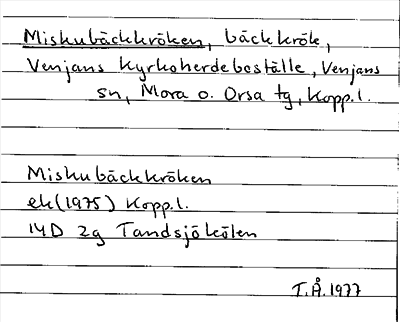 Miskubäckkröken, bäckkrök,
Venjans kyrkoherdeboställe, Venjans
sn, Mora o. Orsa tg, Kopp.l.
Miskubäckkröken
ek (1975) Kopp.l.
14D 2g Tandsjökölen
T.Å. 1977